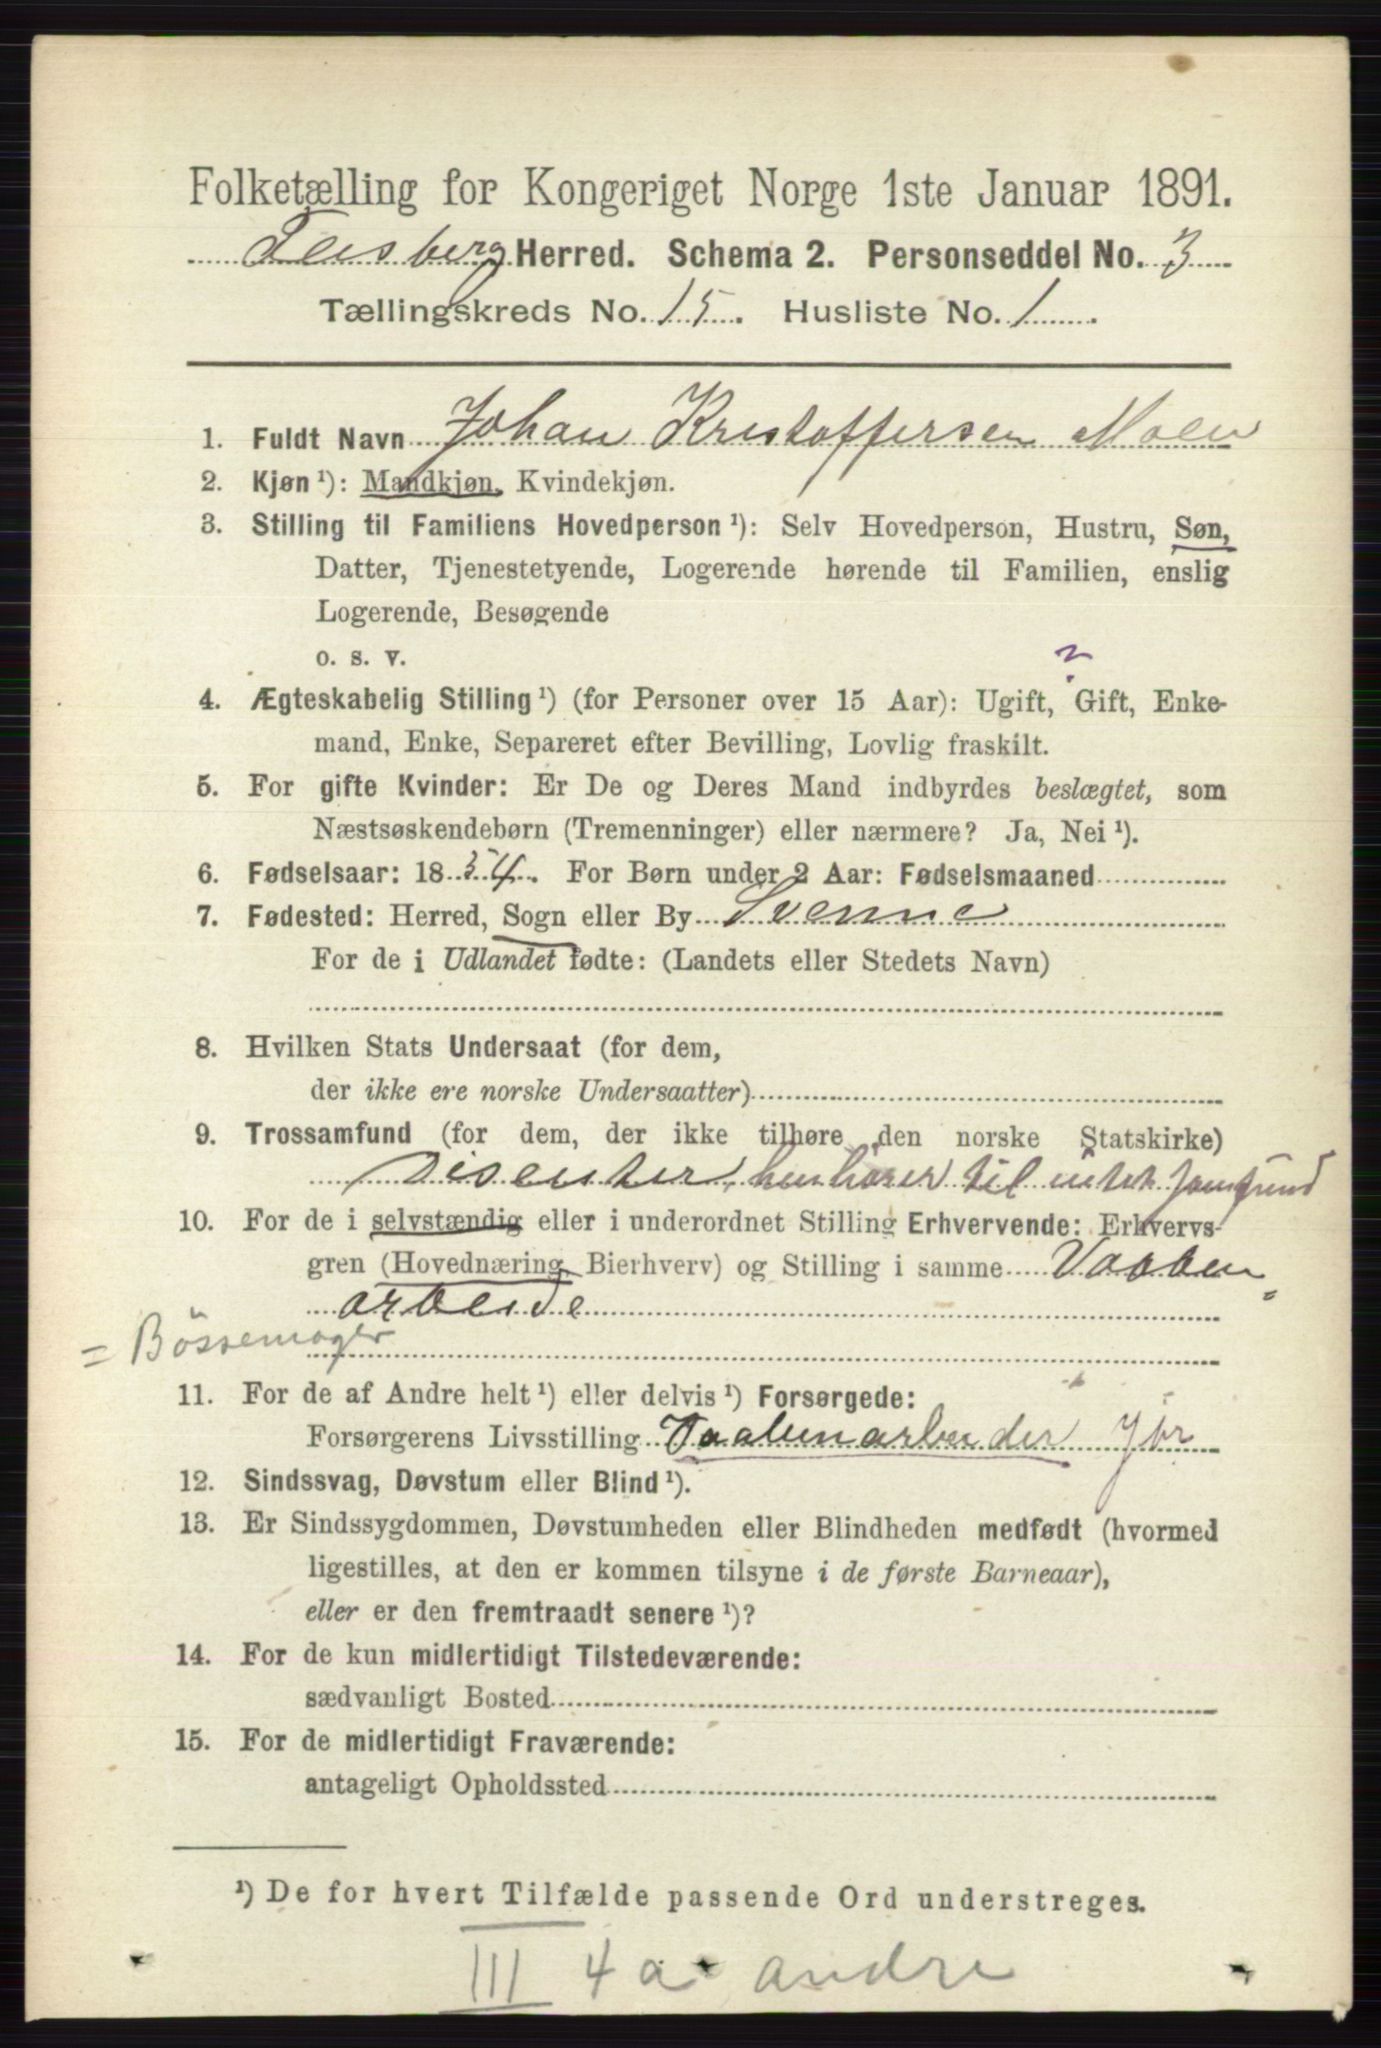 Folketælling for Kongeriget Norge 1ste Januar 1891.
Flesberg Herred. Schema 2. Personseddel No. 3
Tællingskreds No. 15. Husliste No. 1
1. Fuldt Navn Johan Kristoffersen Moen
2. Kjøn ¹): Mandkjøn, Kvindekjøn.
3. Stilling til Familiens Hovedperson ¹): Selv Hovedperson, Hustru, Søn,
Datter, Tjenestetyende, Logerende hørende til Familien, enslig
Logerende, Besøgende
o. s. v.
?
4. Ægteskabelig Stilling ¹) (for Personer over 15 Aar): Ugift, Gift, Enke-
mand, Enke, Separeret efter Bevilling, Lovlig fraskilt.
5. For gifte Kvinder: Er De og Deres Mand indbyrdes beslægtet, som
Næstsøskendebørn (Tremenninger) eller nærmere? Ja, Nei ¹).
6. Fødselsaar: 1854. For Børn under 2 Aar: Fødselsmaaned
7. Fødested: Herred, Sogn eller By Svenne
For de i Udlandet fødte: (Landets eller Stedets Navn)
8. Hvilken Stats Undersaat (for dem,
der ikke ere norske Undersaatter)
9. Trossamfund (for dem, der ikke tilhøre den norske Statskirke)
Disenter, henhører til intet Samfund
10. For de i selvstændig eller i underordnet Stilling Erhvervende: Erhvervs-
gren (Hovednæring, Bierhverv) og Stilling i samme Vaaben=
arbeide
= Bøssemager
11. For de af Andre helt ¹) eller delvis ¹) Forsørgede:
Forsørgerens Livsstilling Vaabenarbeider
12. Sindssvag, Døvstum eller Blind ¹).
13. Er Sindssygdommen, Døvstumheden eller Blindheden medfødt (hvormed
ligestilles, at den er kommen tilsyne i de første Barneaar),
eller er den fremtraadt senere ¹)?
14. For de kun midlertidigt Tilstedeværende:
sædvanligt Bosted
15. For de midlertidigt Fraværende:
antageligt Opholdssted
¹) De for hvert Tilfælde passende Ord understreges.
III 4a andre